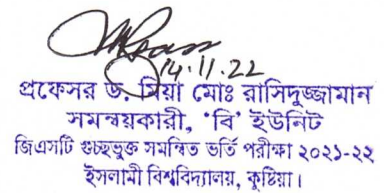 14.11.22
প্রফেসর ড. মিয়া মোঃ রাসিদুজ্জামান
সমন্বয়কারী, ‘বি’ ইউনিট
জিএসটি গুচ্ছভুক্ত সমন্বিত ভর্তি পরীক্ষা ২০২১-২২
ইসলামী বিশ্ববিদ্যালয়, কুষ্টিয়া।